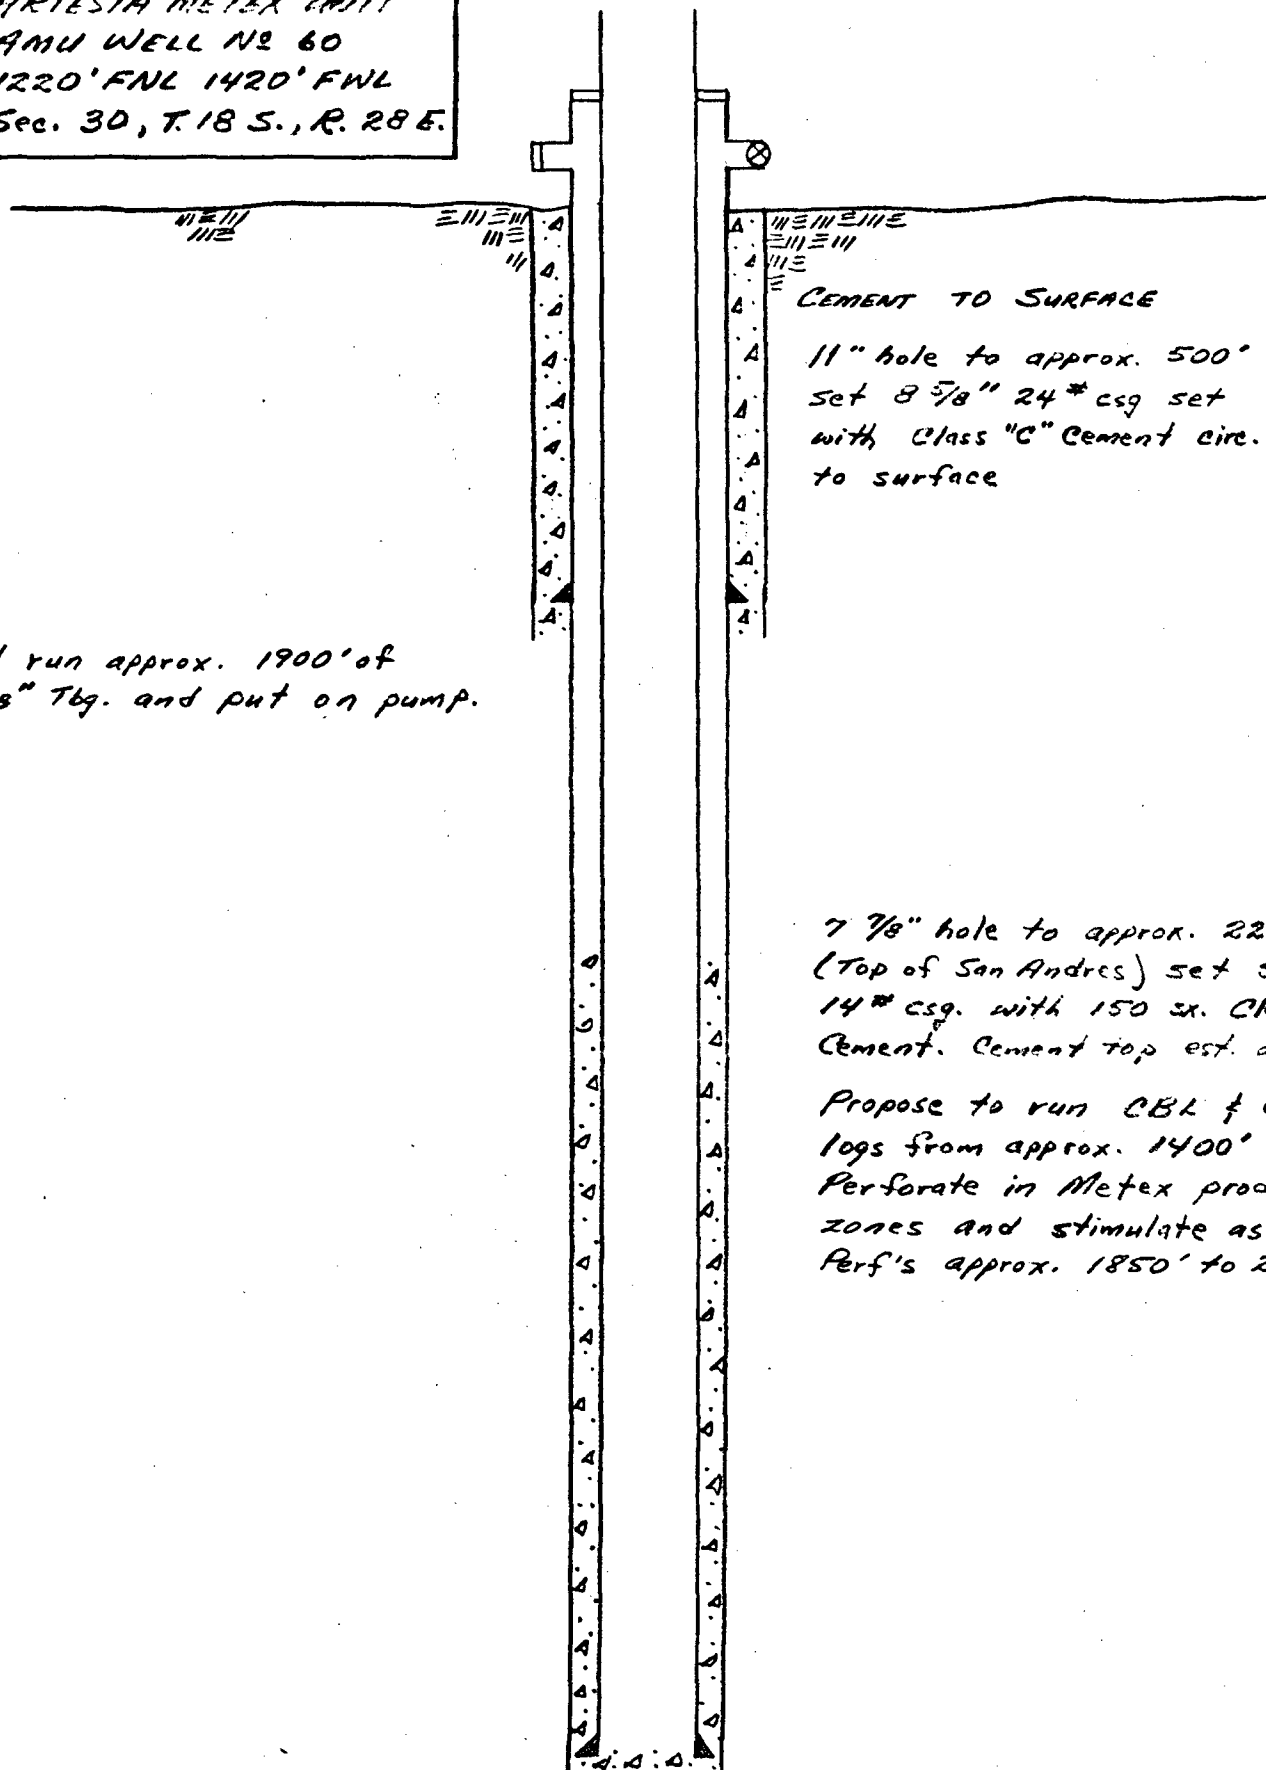 ARTESIA METEX UNIT
AMU WELL Nº 60
1220' FNL 1420' FWL
Sec. 30, T. 18 S., R. 28 E.
CEMENT TO SURFACE
11" hole to approx. 500'
set 8 5/8" 24# csg set
with Class "C" Cement circ.
to surface
run approx. 1900' of
Tbg. and put on pump.
7 7/8" hole to approx.
(Top of San Andres) set
14# csg. with 150 sx.
Cement. Cement top est.
Propose to run CBL &
logs from approx. 1400'
Perforate in Metex
zones and stimulate as
Perf's approx. 1850' to